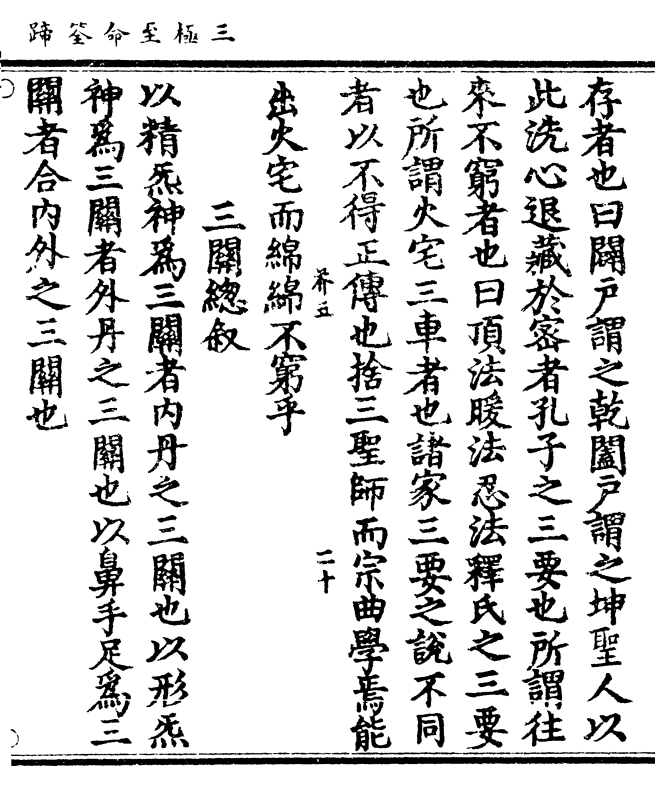 三極至命筌蹄
存者也曰闢戶謂之乾闔戶謂之坤聖人以
此洗心退藏於密者孔子之三要也所謂往
來不窮者也曰頂法暖法忍法釋氏之三要
也所謂火宅三車者也諸家三要之說不同
者以不得正傳也捨三聖師而宗曲學焉能
芥五
二十
出火宅而綿綿不窮乎
三關總敘
以精炁神為三關者內丹之三關也以形炁
神為三關者外丹之三關也以鼻手足為三
關者合內外之三關也